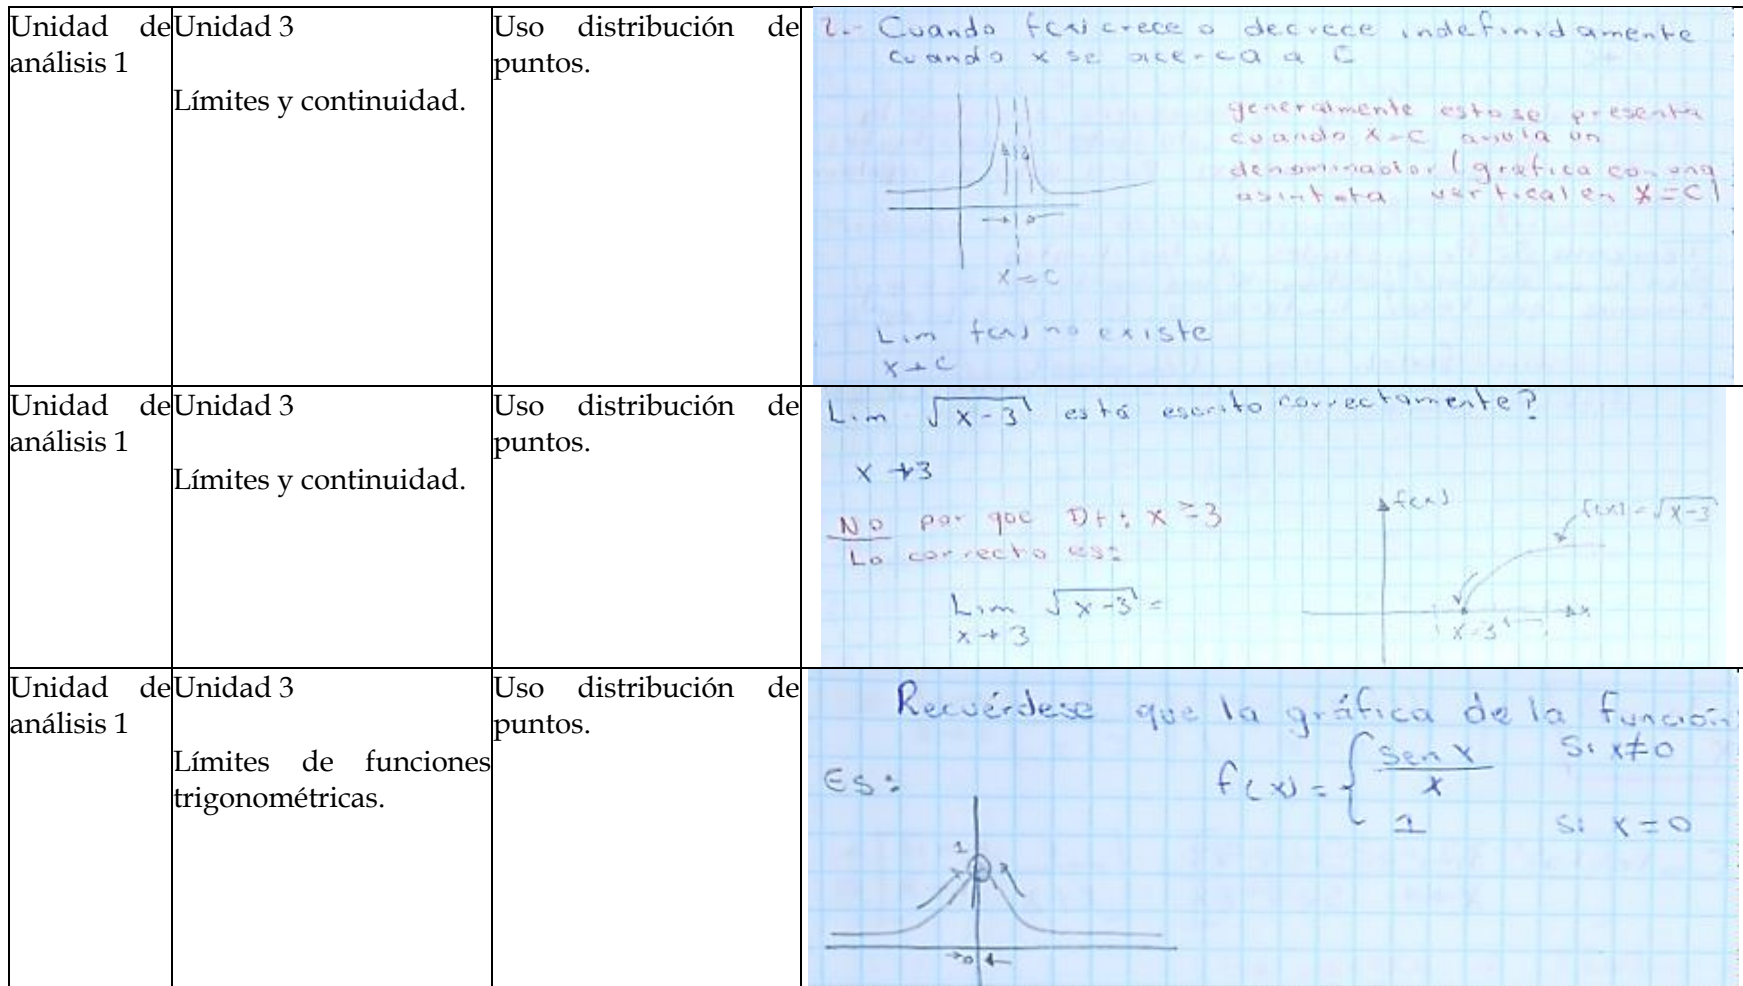 Unidad de
análisis 1
Unidad 3
Límites y continuidad.
Uso distribución de
puntos.
2.- Cuando f(x) crece o decrece indefinidamente
cuando x se acerca a C
generalmente esto se presenta
cuando x=c anula un
denominador (gráfica con una
asíntota vertical en x=C)
x=C
Lim f(x) no existe
x→C
Unidad de
análisis 1
Unidad 3
Límites y continuidad.
Uso distribución de
puntos.
Lim √x-3 está escrito correctamente?
x→3
No por que Df: x≥3
Lo correcto es:
Lim √x-3 =
x→3
f(x)
f(x)=√x-3
x
x=3
Unidad de
análisis 1
Unidad 3
Límites de funciones
trigonométricas.
Uso distribución de
puntos.
Recuérdese que la gráfica de la función
f(x) = { Sen x / x Si x≠0
1 Si x=0
Es:
1
0